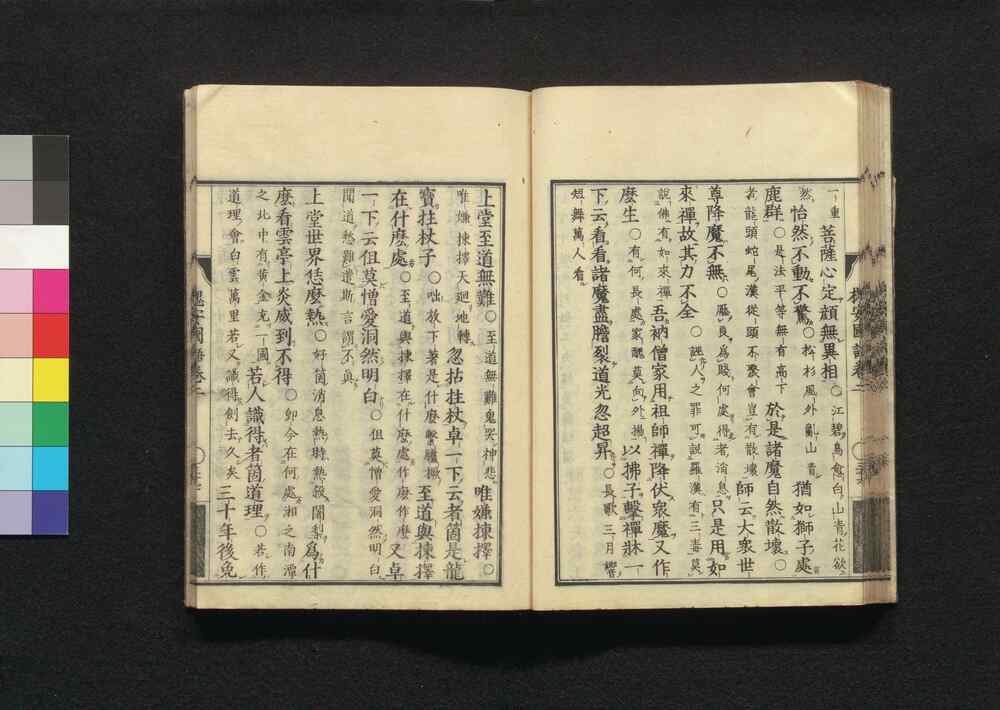 一重菩薩心定顔無異相○江碧鳥愈白山青花欲
然怡然不動不驚○松杉風外亂山青猶如獅子處
鹿群○是法平等無有高下於是諸魔自然散壞○
者龍頭蛇尾漢從頭不聚會豈有散壞師云大衆世
尊降魔不無○壓良爲賤何處得者消息只是用如
來禪故其力不全○誣人之罪可説羅漢有三毒莫
説佛有如來禪吾衲僧家用祖師禪降伏衆魔又作
麽生○有何長處家醜莫向外揚以拂子擊禪牀一
下云看看諸魔盡膽裂道光忽超昇○長歌三月響
短舞萬人看
槐安國語卷二
上堂至道無難○至道無難鬼哭神悲唯嫌揀擇○
唯嫌揀擇天廻地轉忽拈拄杖卓一下云者箇是龍
寶拄杖子○咄放下著是什麽繫驢橛至道與揀擇
在什麽處○至道與揀擇在什麽處作麽作麽又卓
一下云但莫憎愛洞然明白○但莫憎愛洞然明白
聞道愁難遣斯言謂不與
上堂世界恁麽熱○好箇消息熱時熱殺闍梨爲什
麽看雲亭上炎威到不得○卽今在何處湘之南潭
之北中有黄金充一國若人識得者箇道理○若作
道理會白雲萬里若又識得劍去久矣三十年後免
槐安國語卷二